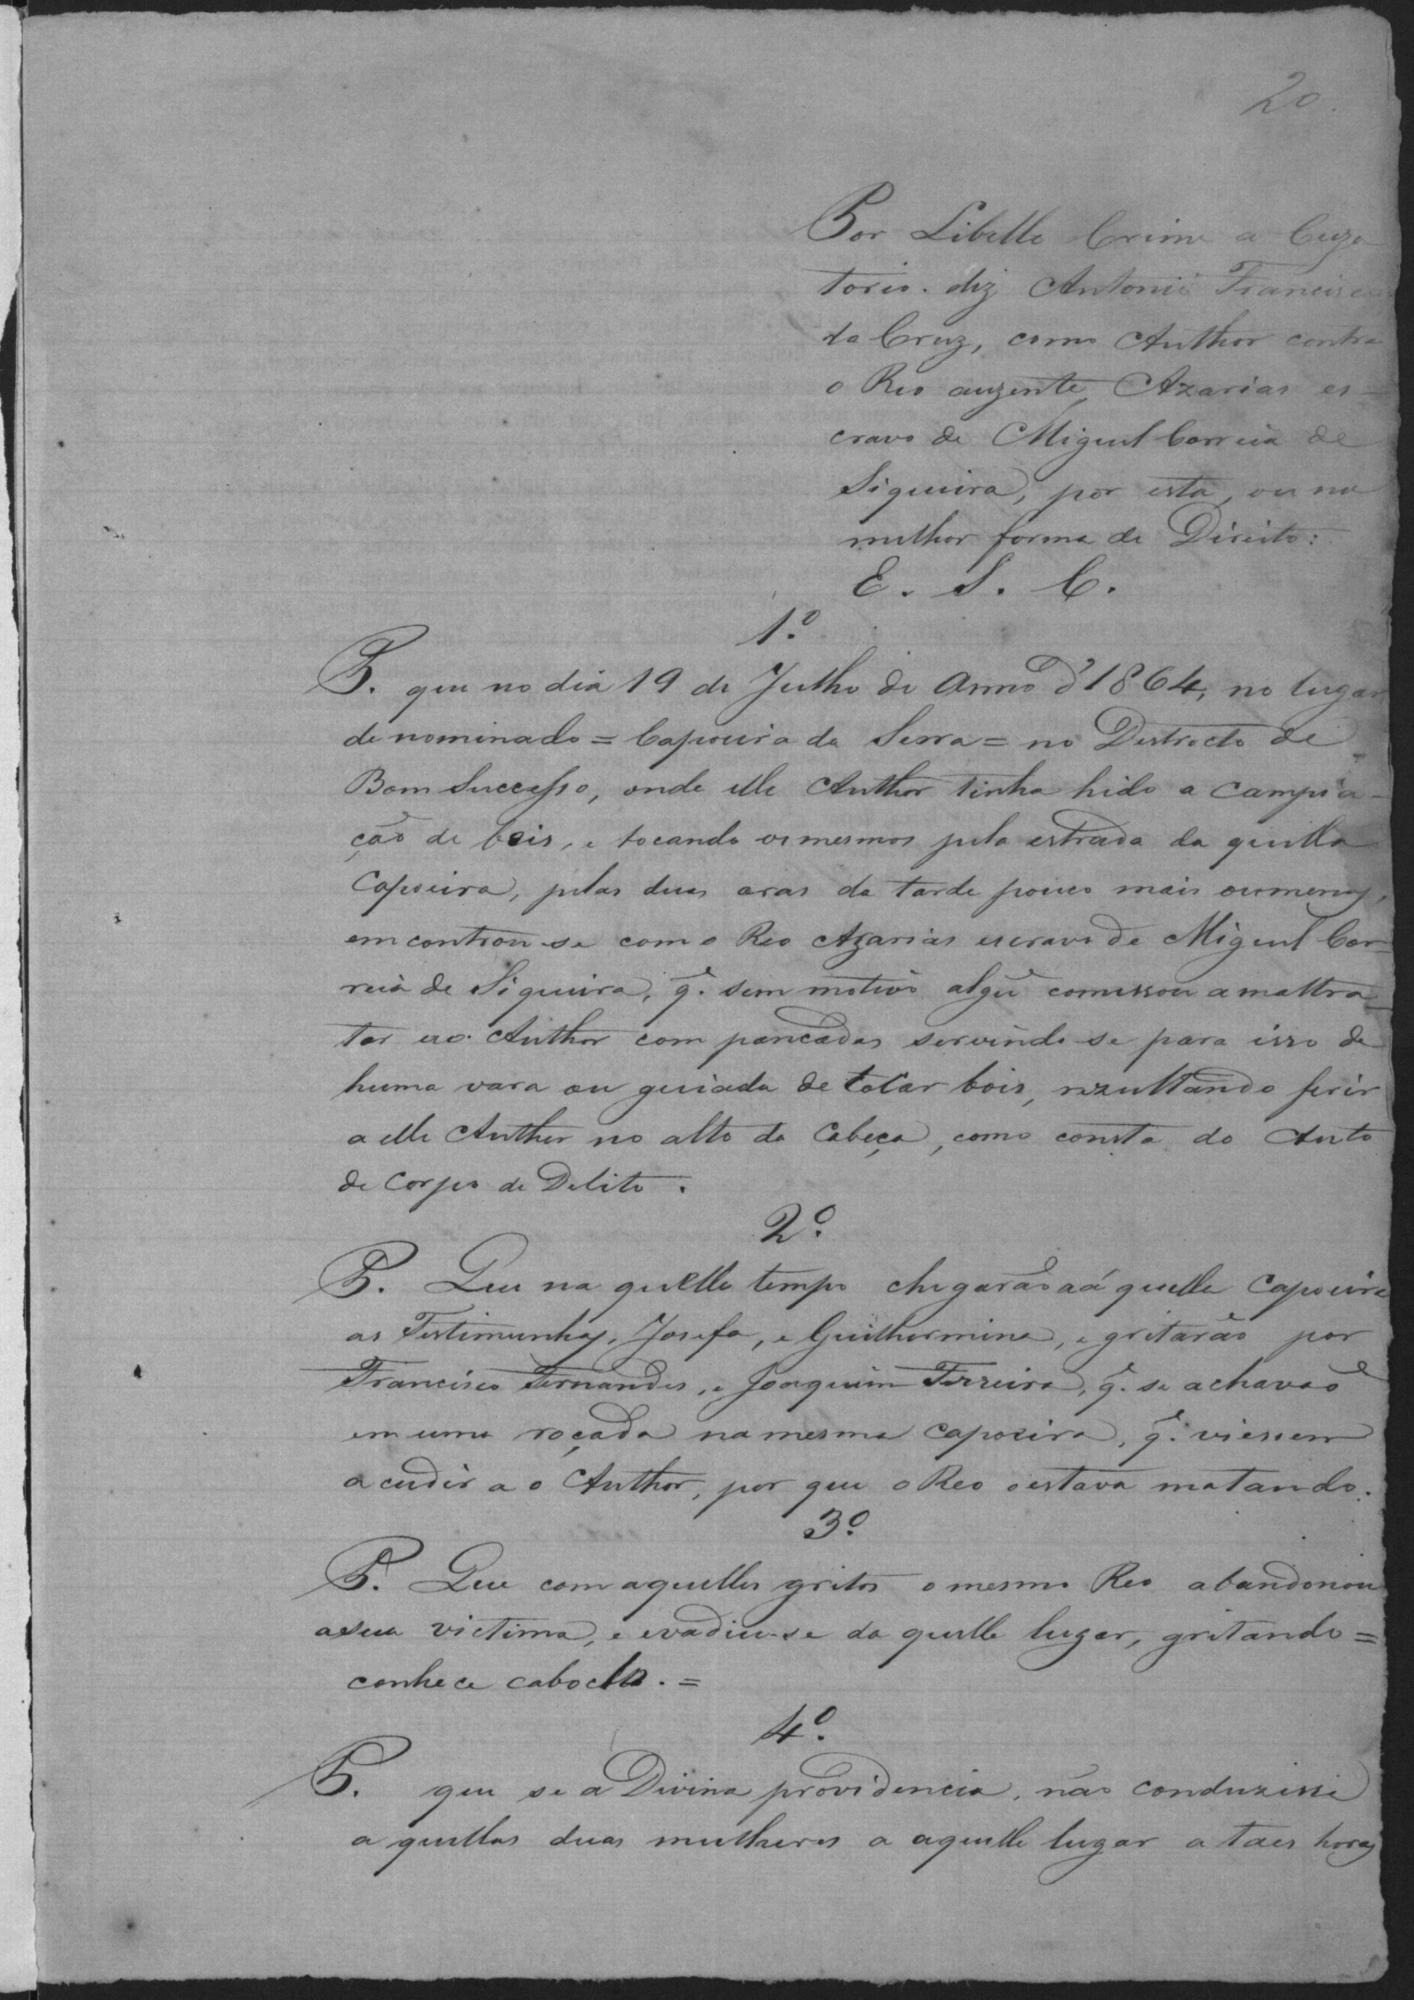 20.
Por Libello Crime a Cuza
torio. diz Antonio Francisco
da Cruz, como Author contra
o Reo auzente, Azarias es=
cravo de Miguel Correia de
Siqueira, por esta, ou na
milhor forma de Direito:
E. S. C.
1.º
P. que no dia 19 de Julho do Anno d'1864, no lugar
de nominado = Capoeira da Serra = no Destrocto de
Bom Successo, onde elle Author tinha hido a Campia-
ção de bois, e tocando os mesmos pela estrada da quella
Capoeira, pelas duas oras da tarde pouco mais ou menos,
em controu-se com o Reo Azarias escravo de Miguel Cor=
reia de Siqueira, q. sem motivo algũ comessou a maltra=
tar ao Author com pancadas servindo-se para isso de
huma vara ou guiada de tocar bois, rezultando ferir
a elle Author no alto da Cabeça, como consta do Auto
de Corpo de Delito.
2.º
P. Que na quelle tempo chegarão aá quella Capoeira
as Testimunhas, Josefa, e Guilhermina, e gritarão por
Francisco Fernandes, e Joaquim Ferreira, q. se achavão
em uma roçada na mesma Capoeira, q. viessem
a cudir a o Author, por que o Reo o estava matando.
3.º
P. Que com aquelles gritos o mesmo Reo abandonou
a sua victima, e evadiu-se da quelle lugar, gritando =
conhece caboclo. =
4.º
P. que se a Divina providencia, não conduzisse
a quellas duas mulheres a aquelle lugar a taes horas